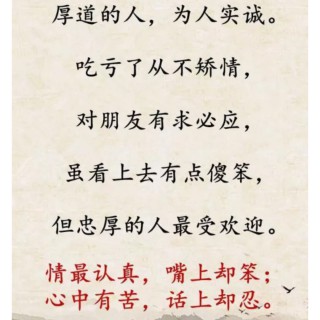 厚道的人，为人实诚。
吃亏了从不矫情，
对朋友有求必应，
虽看上去有点傻笨，
但忠厚的人最受欢迎。
情最认真，嘴上却笨；
心中有苦，话上却忍。